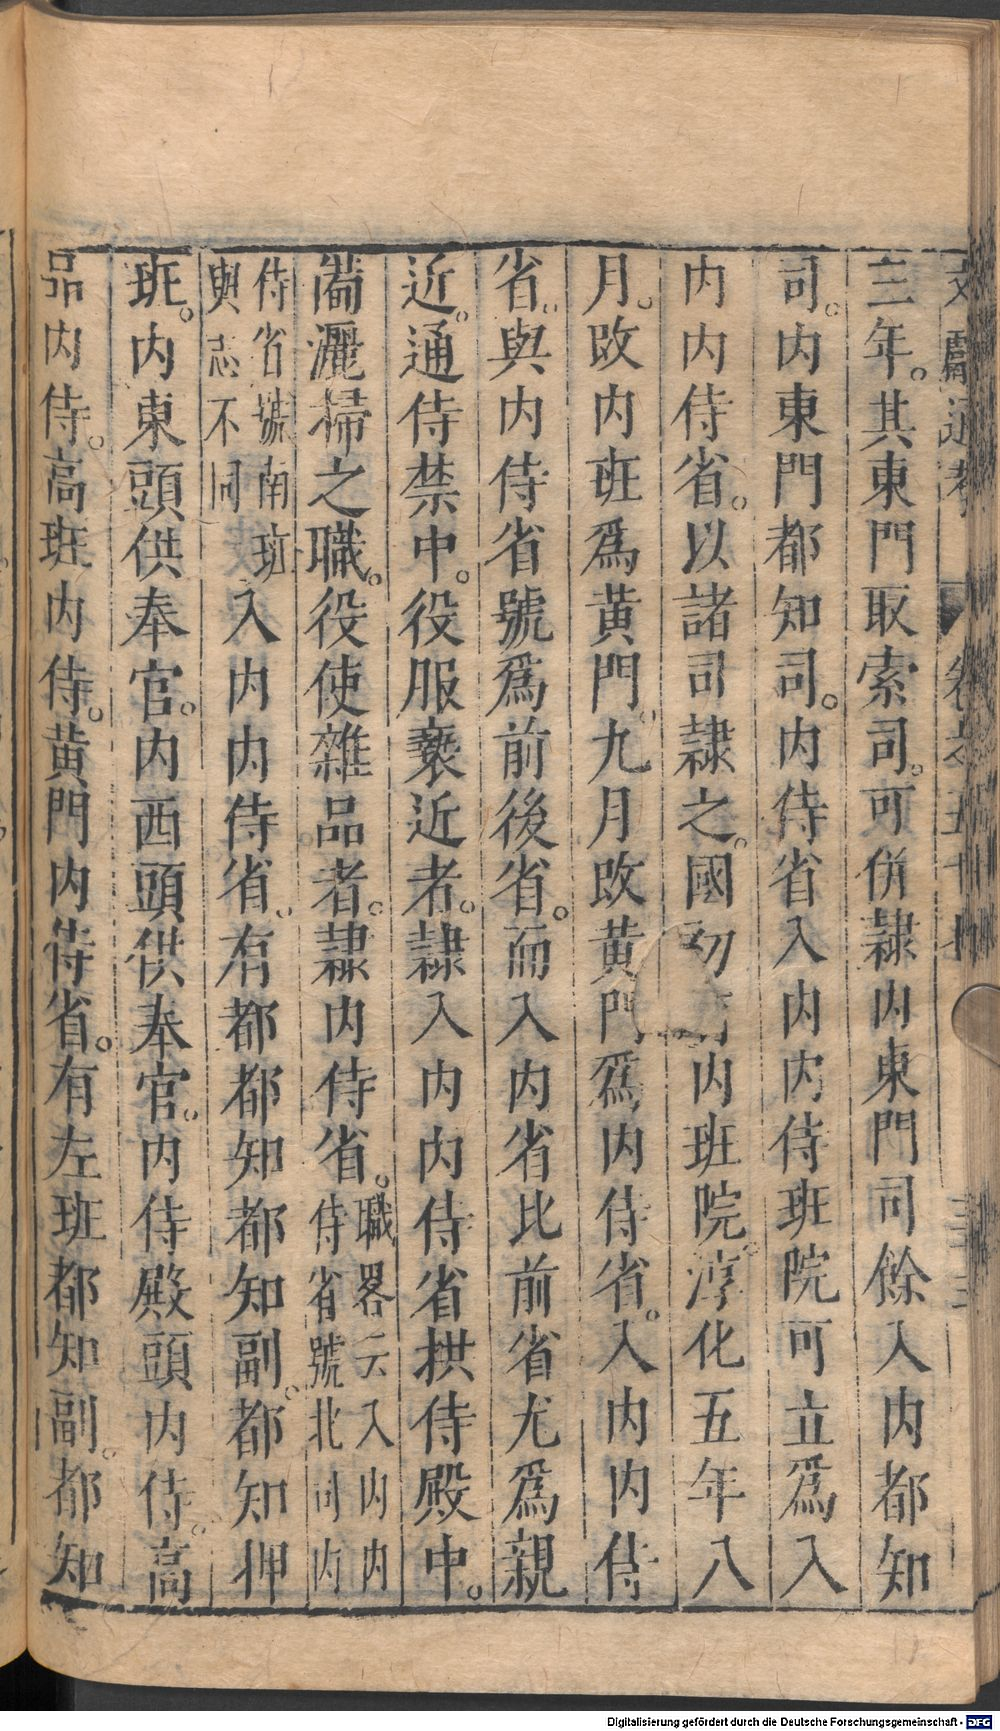 文獻通考 卷之五十七
三年。其東門取索司。可併隷內東門司餘入內都知
司。內東門都知司。內侍省入內內侍班院可立爲入
內內侍省。以諸司隷之。國初有內班院。淳化五年八
月。改內班爲黃門。九月改黃門爲內侍省。入內內侍
省。與內侍省號爲前後省。而入內省比前省尤爲親
近。通侍禁中。役服褻近者。隷入內內侍省拱侍殿中。
備灑掃之職。役使雜品者。隷內侍省。職畧云入內內
侍省號北司內
侍省號南班
與志不同
入內內侍省。有都都知都知副。都知押
班。內東頭供奉官。內西頭供奉官。內侍殿頭內侍。高
品內侍。高班內侍。黃門內侍省。有左班都知副。都知
Digitalisierung gefördert durch die Deutsche Forschungsgemeinschaft - DFG